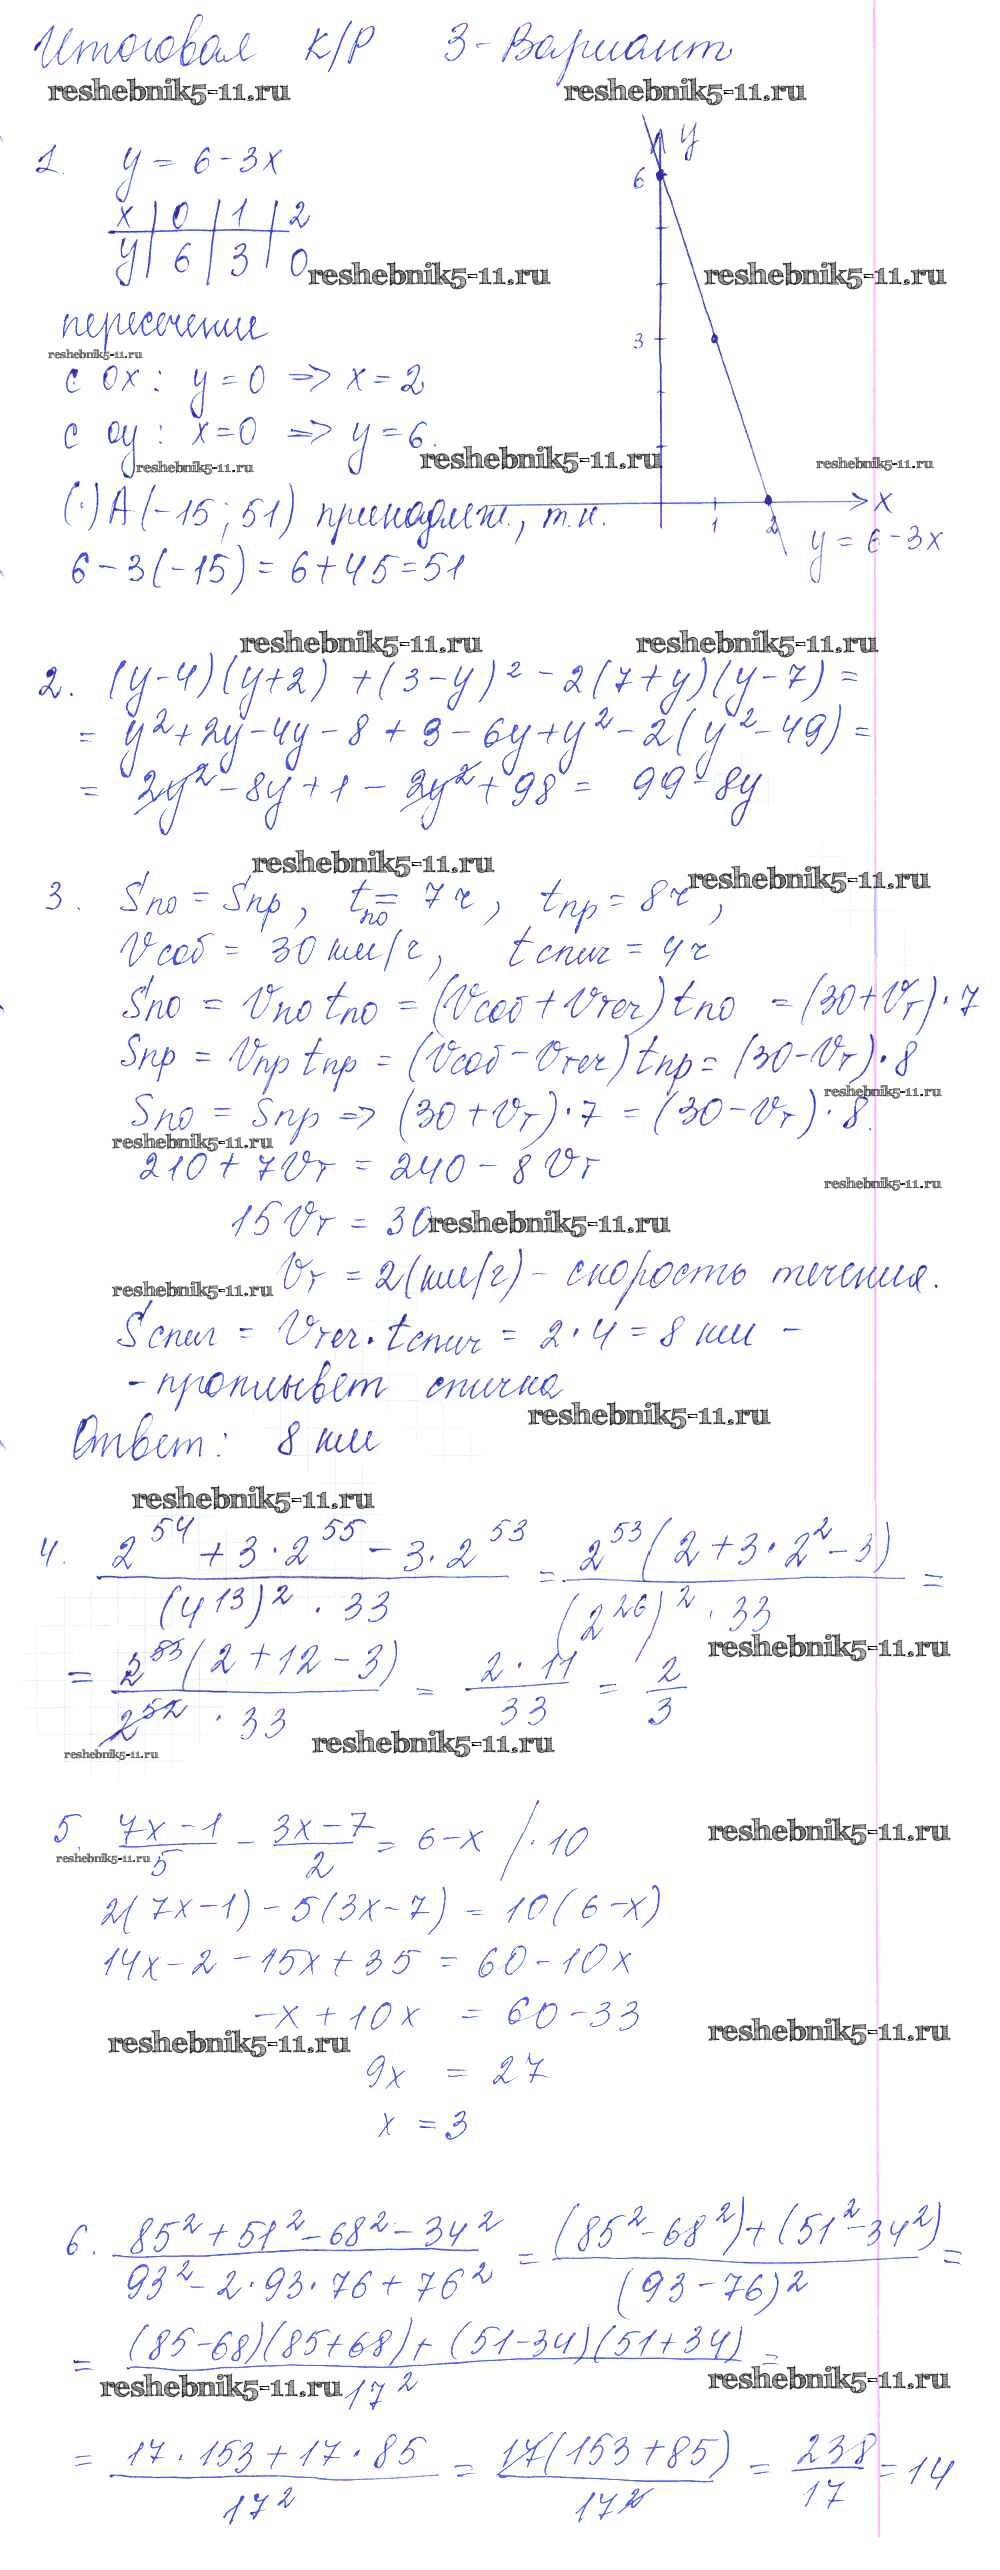 Итоговая К/Р 3-Вариант
reshebnik5-11.ru reshebnik5-11.ru
1. y = 6 - 3x
x | 0 | 1 | 2
y | 6 | 3 | 0
reshebnik5-11.ru reshebnik5-11.ru
пересечение
reshebnik5-11.ru
с ox: y = 0 => x = 2
с oy: x = 0 => y = 6.
reshebnik5-11.ru reshebnik5-11.ru reshebnik5-11.ru
(·) A (-15; 51) принадлеж., т.к.
6 - 3(-15) = 6 + 45 = 51
y
6
3
1 2 x
y = 6 - 3x
reshebnik5-11.ru reshebnik5-11.ru
2. (y-4)(y+2) + (3-y)² - 2(7+y)(y-7) =
= y² + 2y - 4y - 8 + 9 - 6y + y² - 2(y² - 49) =
= 2y² - 8y + 1 - 2y² + 98 = 99 - 8y
reshebnik5-11.ru reshebnik5-11.ru
3. Sпо = Sпр, tпо = 7ч, tпр = 8ч,
Vсоб = 30 км/ч, tспич = 4ч
Sпо = Vпо tпо = (Vсоб + Vтеч) tпо = (30 + Vт)·7
Sпр = Vпр tпр = (Vсоб - Vтеч) tпр = (30 - Vт)·8
reshebnik5-11.ru
Sпо = Sпр => (30 + Vт)·7 = (30 - Vт)·8.
reshebnik5-11.ru
210 + 7Vт = 240 - 8Vт
reshebnik5-11.ru
15Vт = 30
reshebnik5-11.ru
Vт = 2(км/ч) - скорость течения.
reshebnik5-11.ru
Sспич = Vтеч · tспич = 2·4 = 8 км -
- проплывет спичка
reshebnik5-11.ru
Ответ: 8 км
reshebnik5-11.ru
4. (2^54 + 3·2^55 - 3·2^53) / ((4^13)²·33) = (2^53(2 + 3·2² - 3)) / ((2^26)²·33) =
reshebnik5-11.ru
= (2^53(2 + 12 - 3)) / (2^52·33) = (2·11)/33 = 2/3
reshebnik5-11.ru reshebnik5-11.ru
5. (7x-1)/5 - (3x-7)/2 = 6 - x /·10
reshebnik5-11.ru reshebnik5-11.ru
2(7x-1) - 5(3x-7) = 10(6-x)
14x - 2 - 15x + 35 = 60 - 10x
-x + 10x = 60 - 33
reshebnik5-11.ru reshebnik5-11.ru
9x = 27
x = 3
6. (85² + 51² - 68² - 34²) / (93² - 2·93·76 + 76²) = ((85² - 68²) + (51² - 34²)) / (93-76)² =
= ((85-68)(85+68) + (51-34)(51+34)) / 17² =
reshebnik5-11.ru reshebnik5-11.ru
= (17·153 + 17·85) / 17² = 17(153+85) / 17² = 238/17 = 14